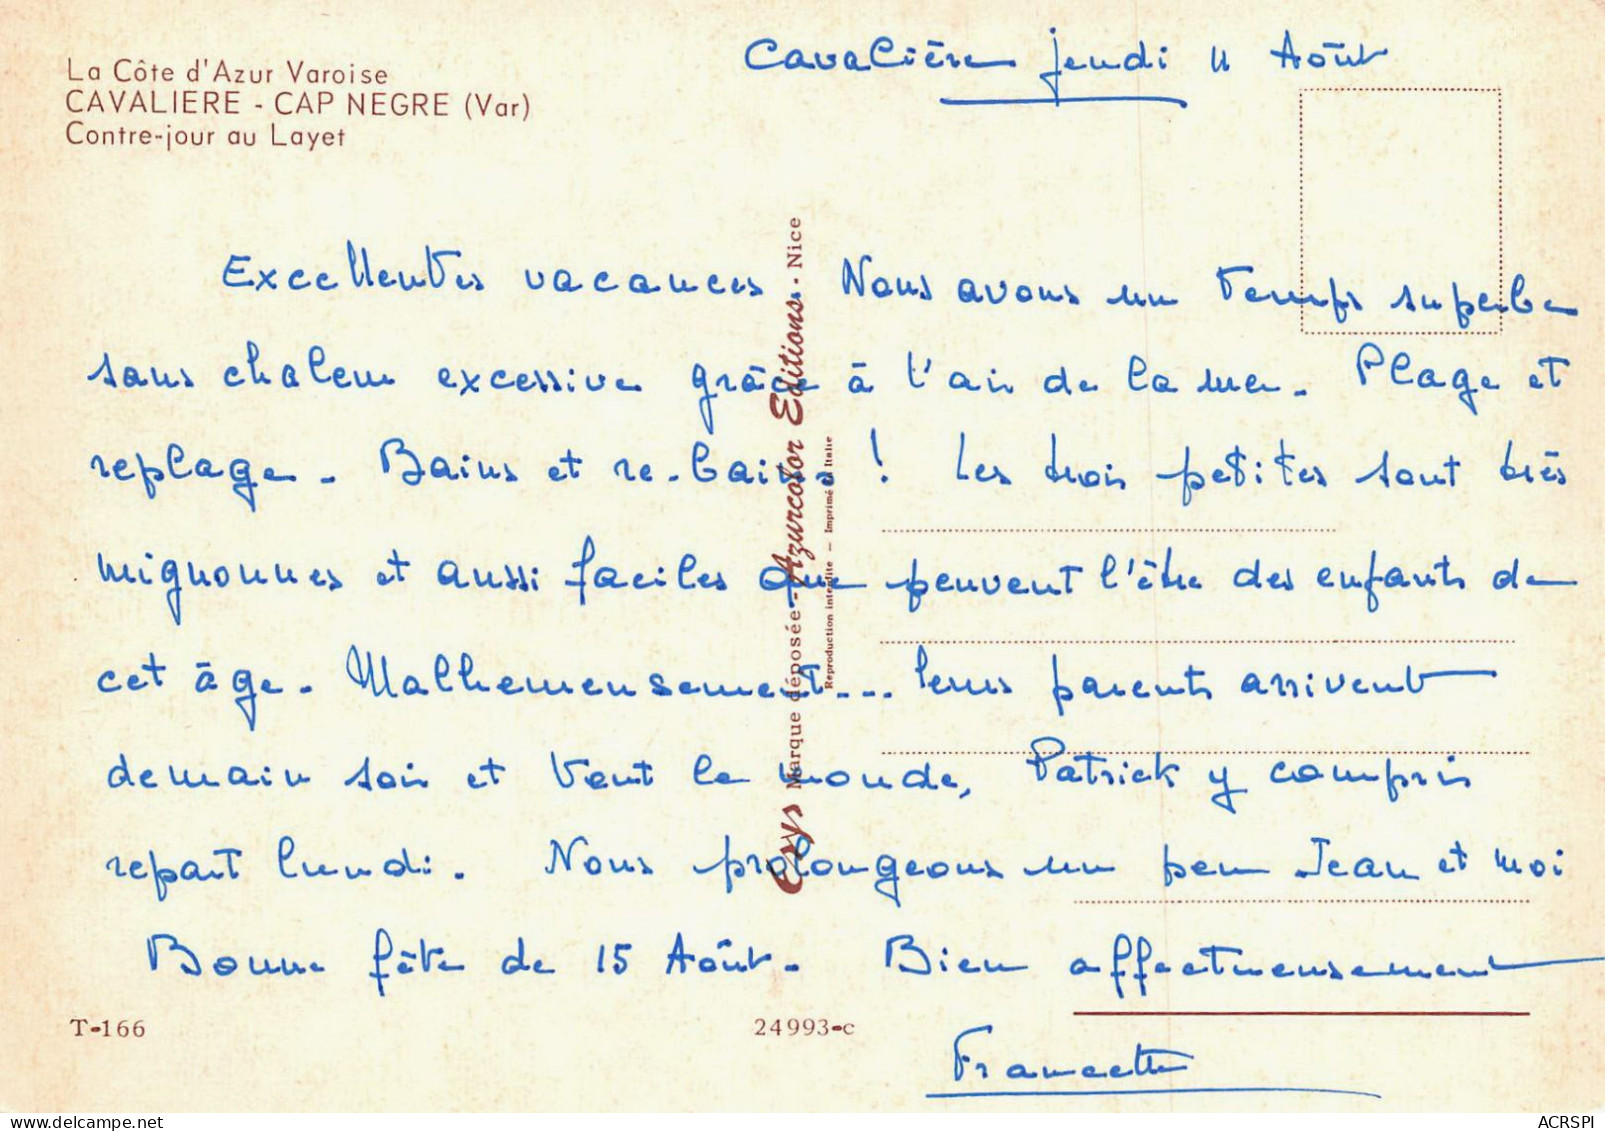 La Côte d'Azur Varoise
CAVALIERE - CAP NEGRE (Var)
Contre-jour au Layet
Cavalière jeudi 11 Août
Excellentes vacances Nous avons un temps superbe
sans chaleur excessive grâce à l'air de la mer. Plage et
replage. Bains et re-bains ! Les trois petites sont très
mignonnes et aussi faciles que peuvent l'être des enfants de
cet âge. Malheureusement... leurs parents arrivent
demain soir et tout le monde, Patrick y compris
repart lundi. Nous prolongeons un peu Jean et moi
Bonne fête de 15 Août. Bien affectueusement
Francette
Crys Marque déposée - Azurcolor Editions - Nice
Reproduction interdite - Imprimé en Italie
T-166
24993-c
delcampe.net
ACRSPI